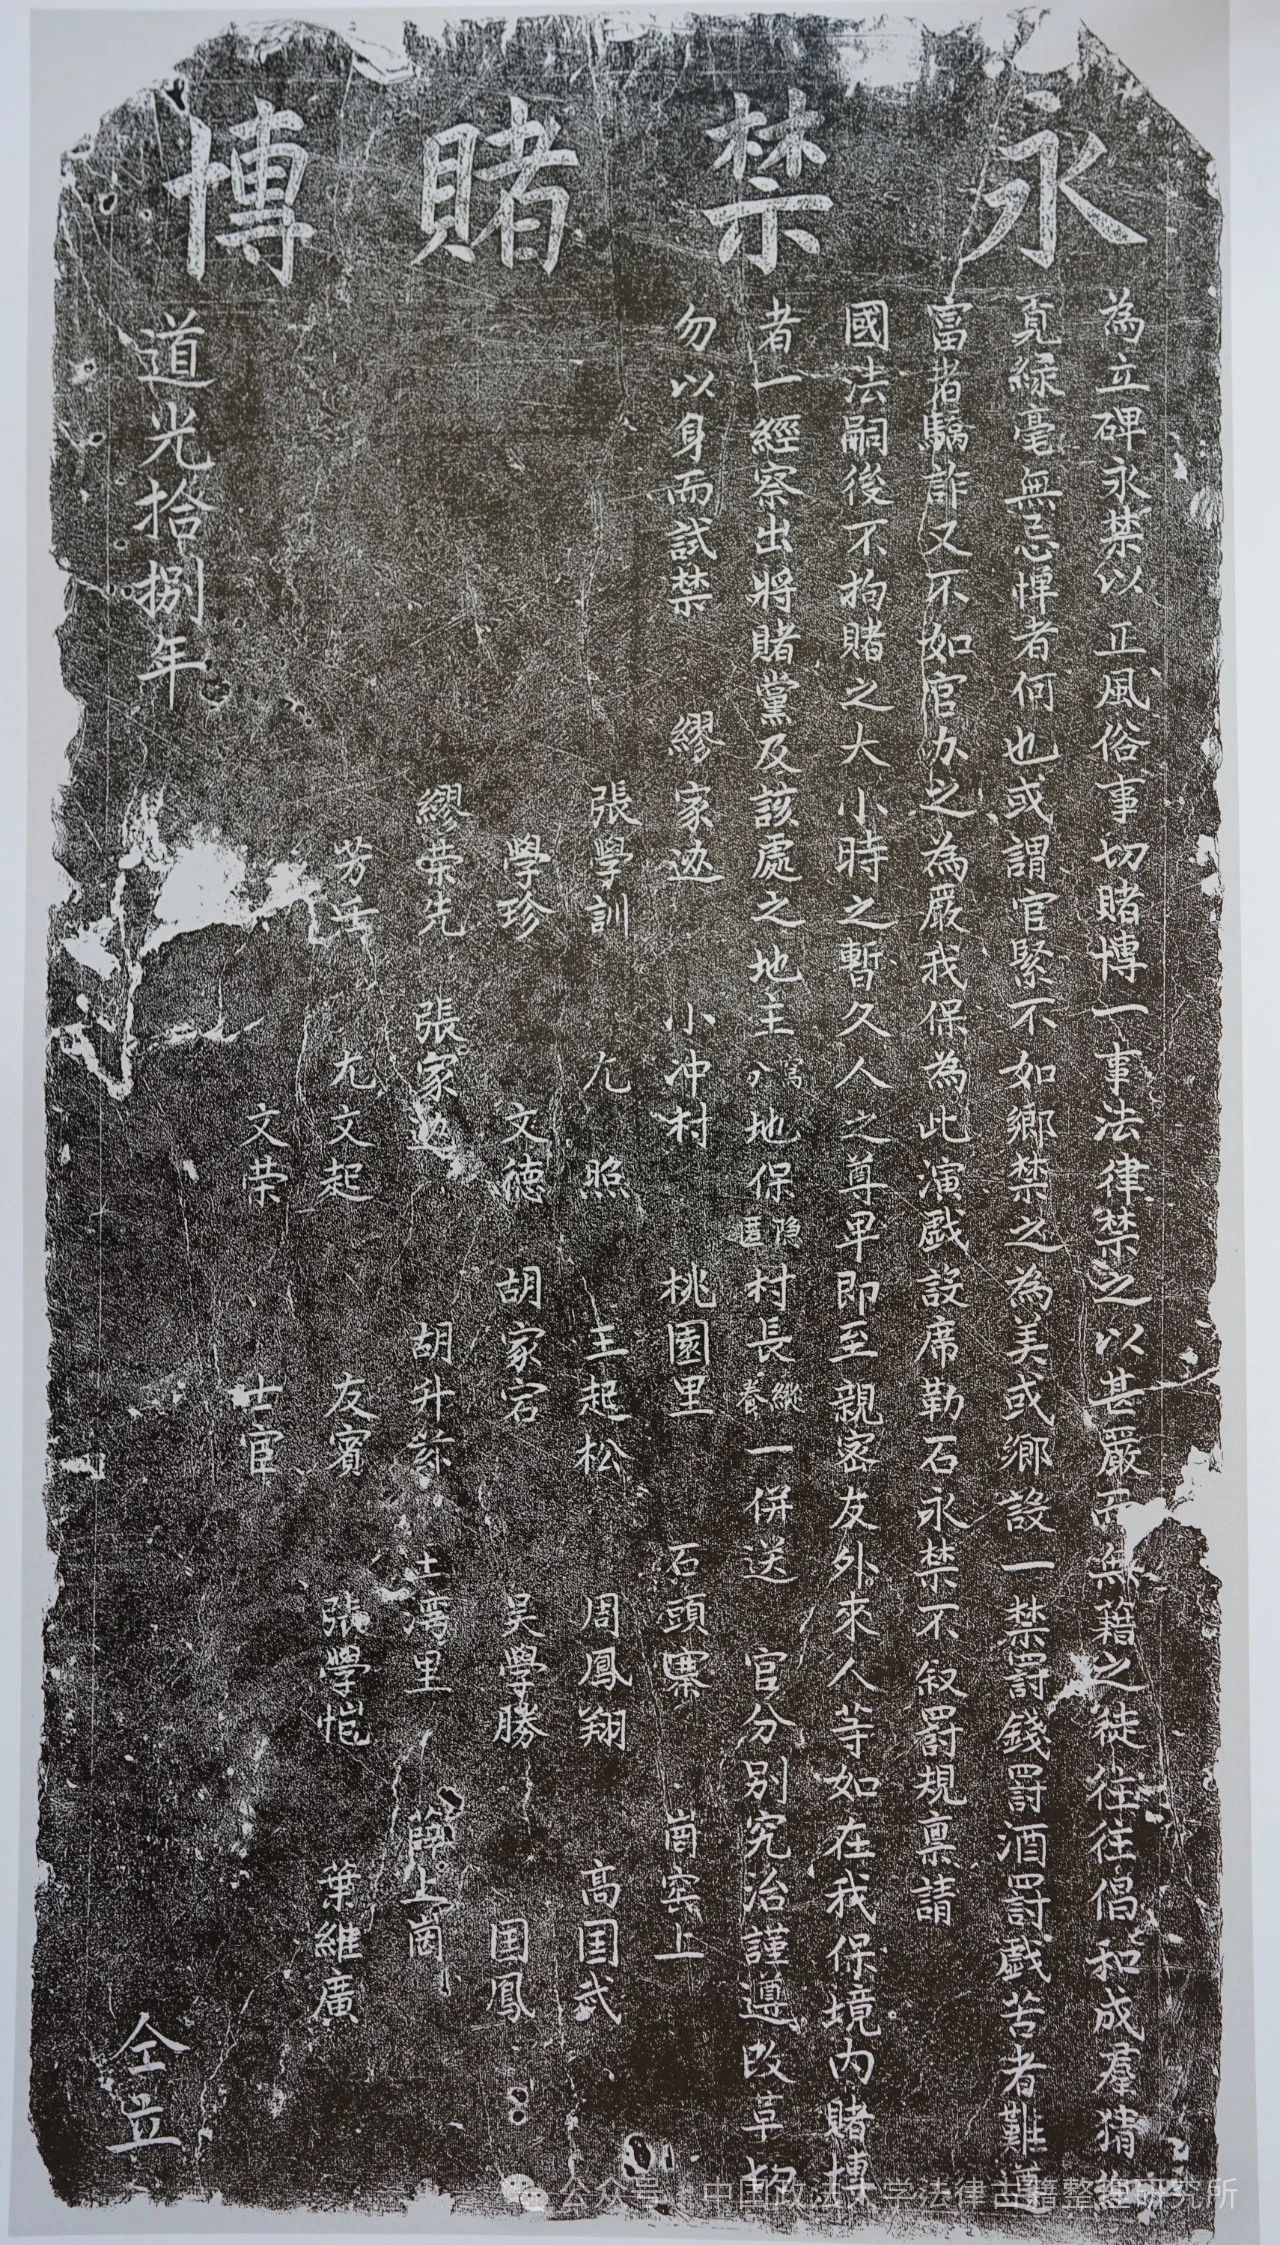 永禁賭博
為立碑永禁以正風俗事切賭博一事法律禁之以甚嚴而無籍之徒往往倡和成羣猜
覔緑毫無忌憚者何也或謂官緊不如鄉禁之為美或鄉設一禁罸錢罸酒罸戲苦者難遵
富者騙詐又不如官办之為嚴我保為此演戲設席勒石永禁不叙罸規禀請
國法嗣後不拘賭之大小時之暫久人之尊卑即至親密友外來人等如在我保境内賭博
者一經察出將賭黨及該處之地主窩分地保隐匿村長縱養一併送 官分別究治謹遵改草切
勿以身而試禁 繆家边 小冲村 桃園里 石頭寨 崗窑上
張學訓 尢照 王起松 周鳳翔 高国式
學珍 文德 胡家宕 吴學勝 国鳳
繆荣先 張家边 胡升 土湾里 薛上崗
芳 尢文起 友賓 張學愷 葉維廣
文荣 士宦
道光拾捌年 仝立
公众号 中国政法大学法律古籍整理研究所